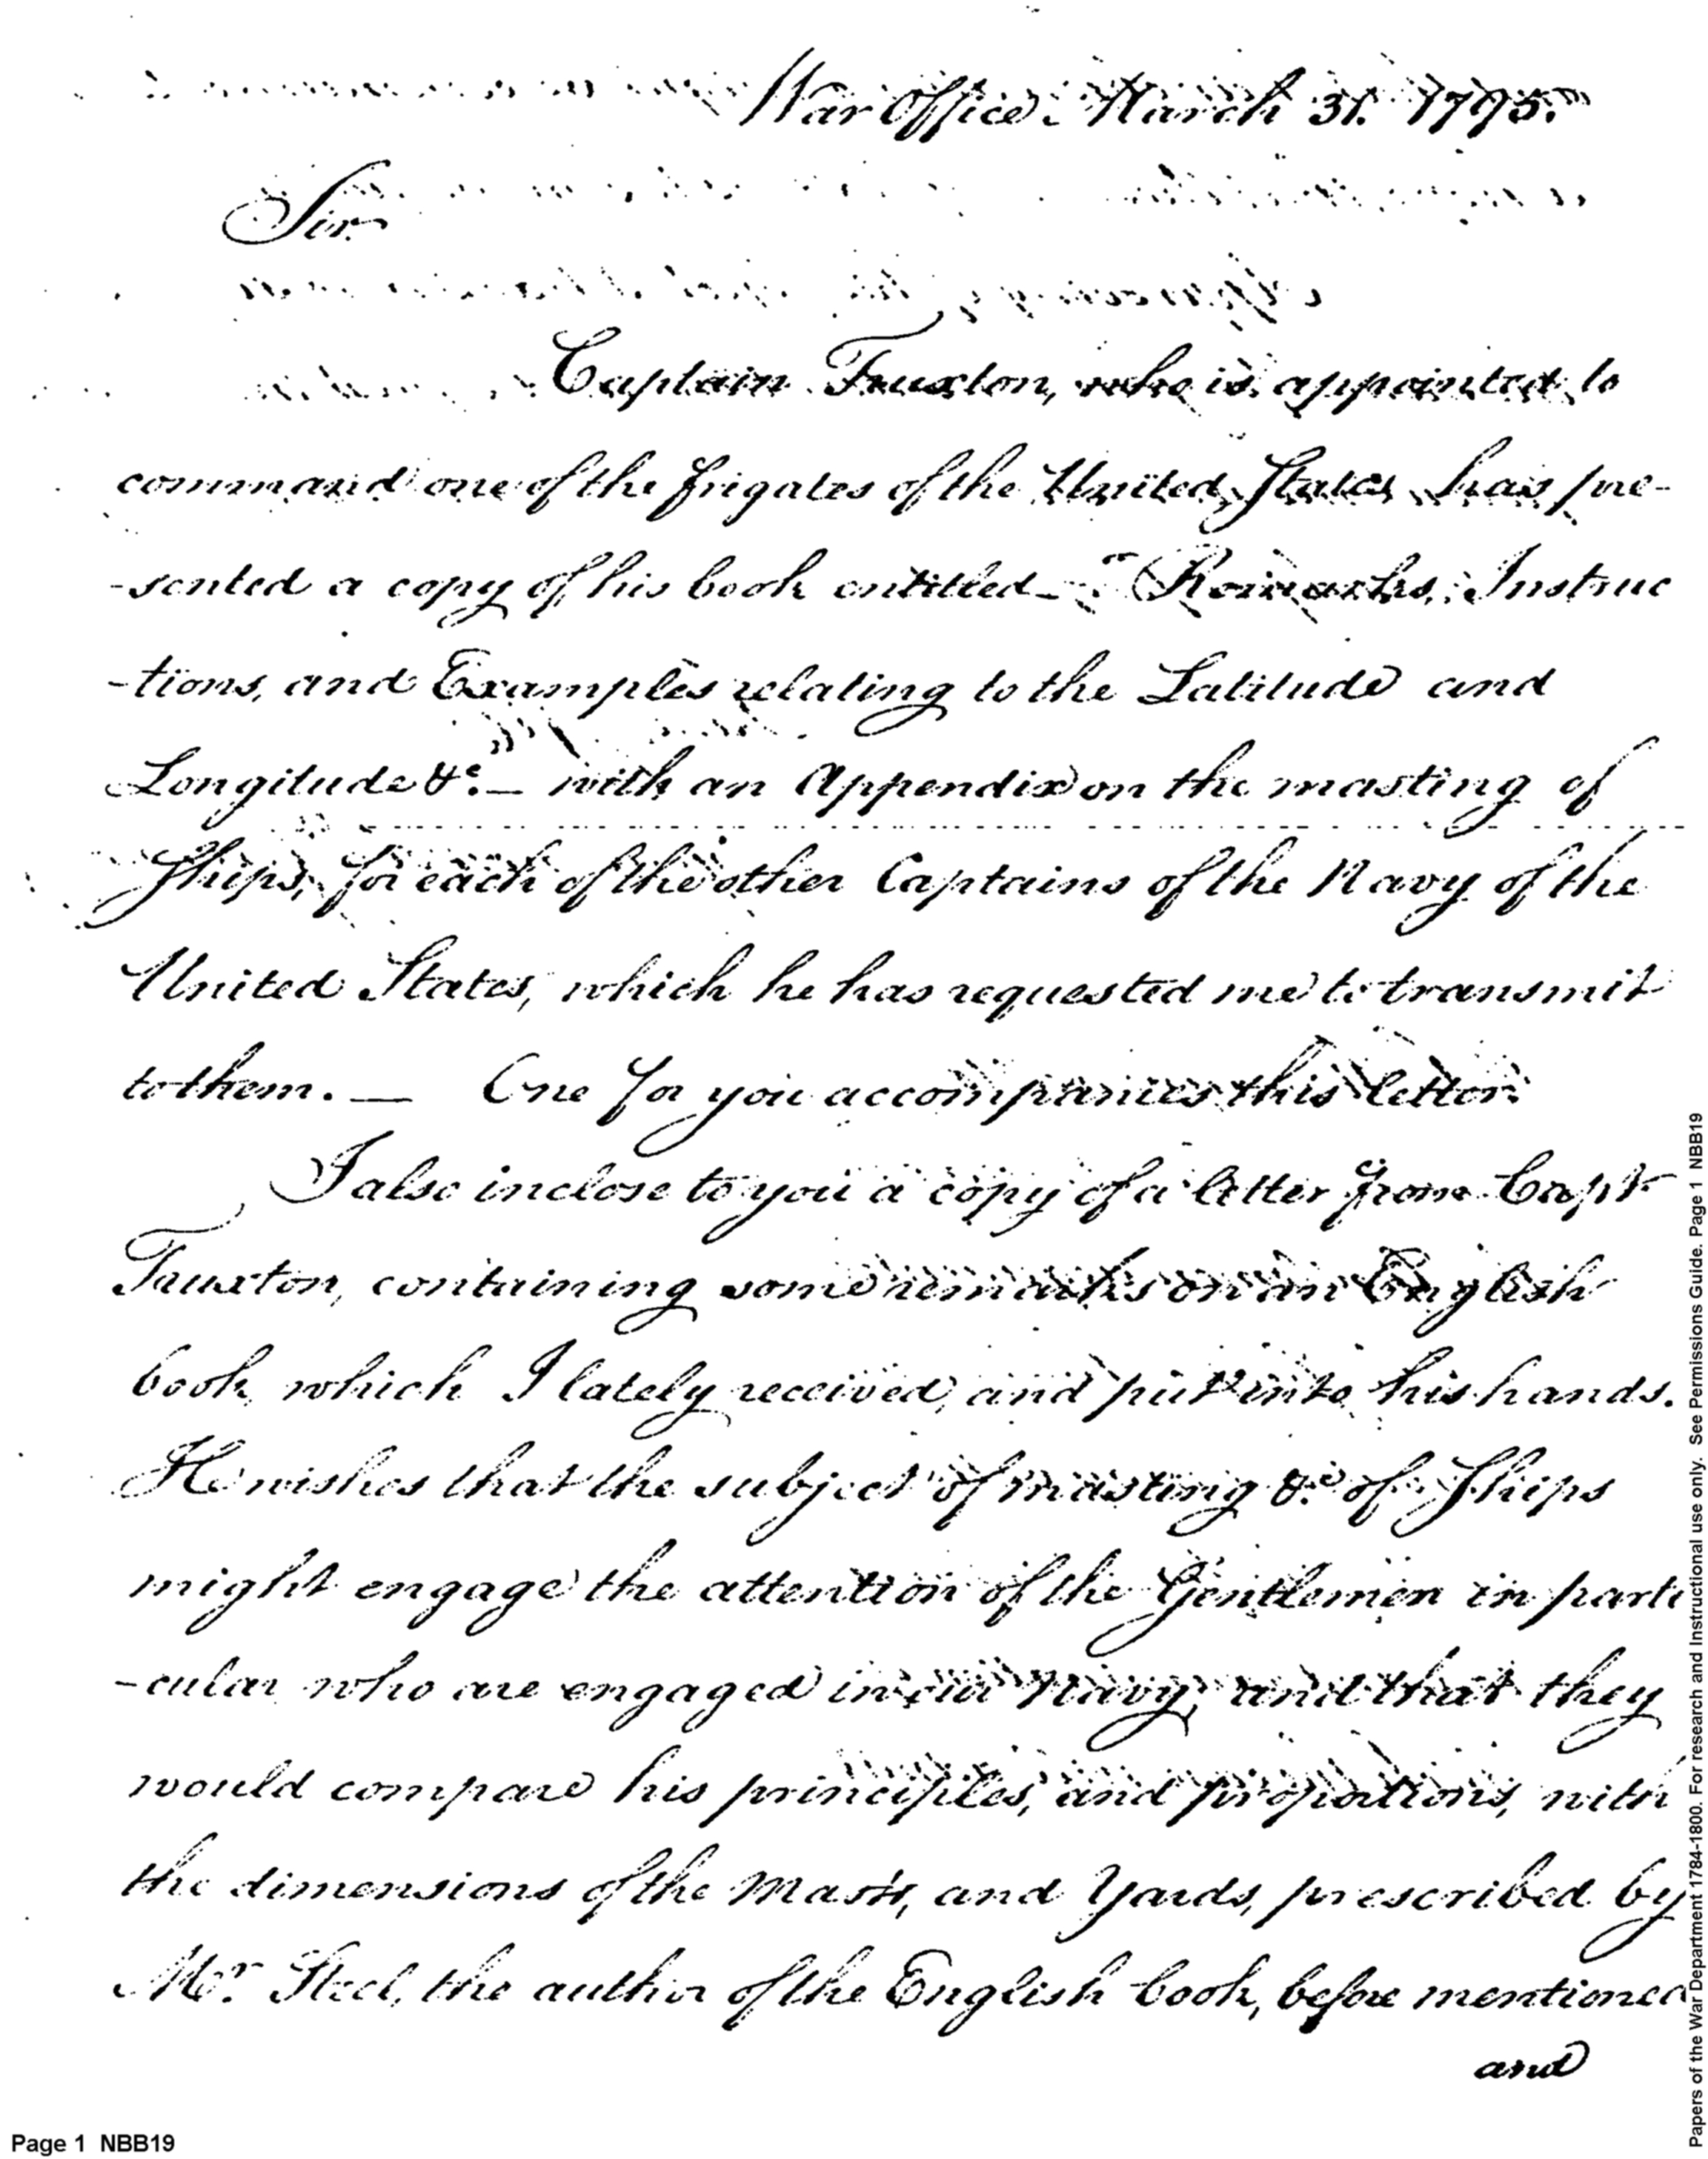 War Office March 31. 1795.
Sir.
Captain Truxton, who is appointed to
command one of the frigates of the United States has pre-
-sented a copy of his book entitled - "Remarks, Instruc
-tions, and Examples relating to the Latitude and
Longitude &c. — with an Appendix on the masting of
Ships, for each of the other Captains of the Navy of the
United States, which he has requested me to transmit
to them. — One for you accompanies this letter.
I also inclose to you a copy of a letter from Capt
Truxton, containing some remarks on an English
book which I lately received, and put into his hands.
He wishes that the subject of masting &c of Ships
might engage the attention of the Gentlemen in parti
-cular who are engaged in our Navy, and that they
would compare his principles, and proportions, with
the dimensions of the Masts, and Yards, prescribed by
Mr. Steel, the author of the English book, before mentioned
and
Page 1 NBB19
Papers of the War Department 1784-1800. For research and Instructional use only. See Permissions Guide. Page 1 NBB19